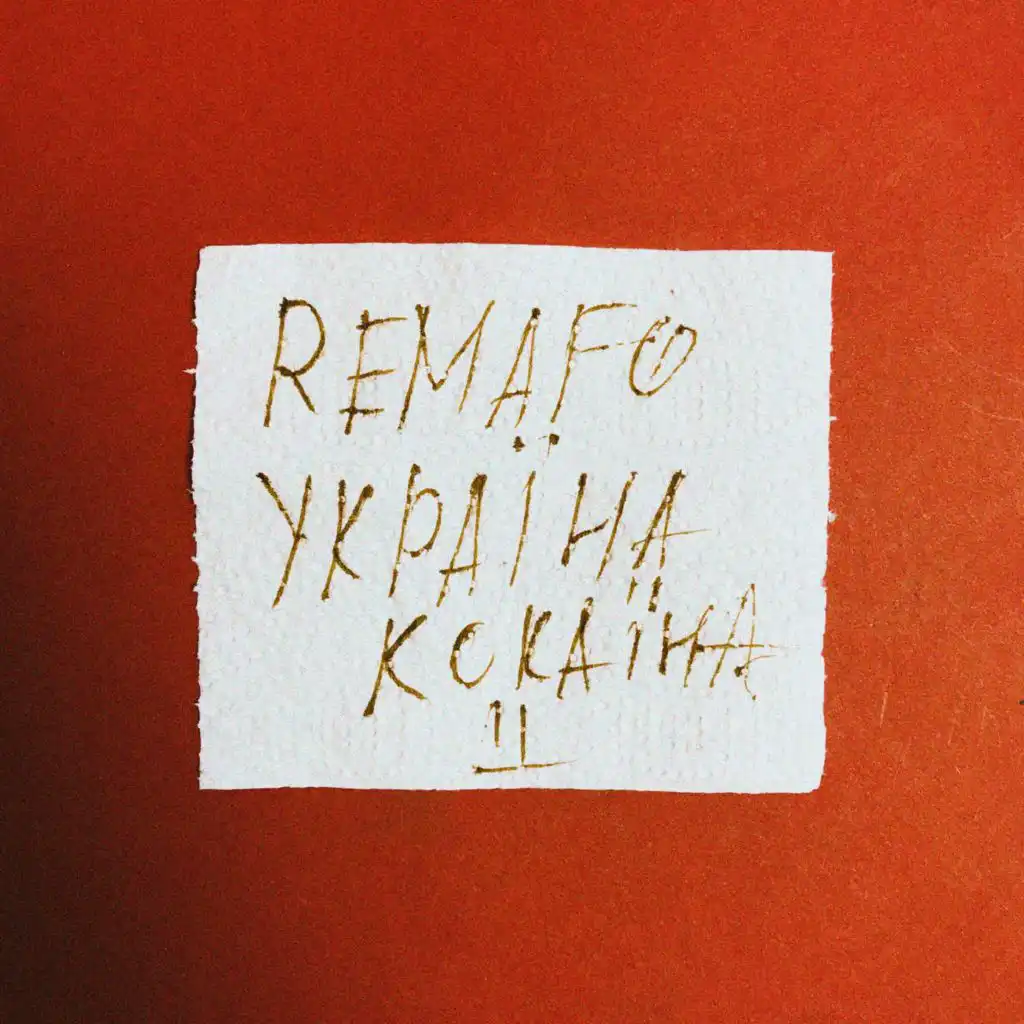 REMAFO
УКРАЇНА
КОКАЇНА
II